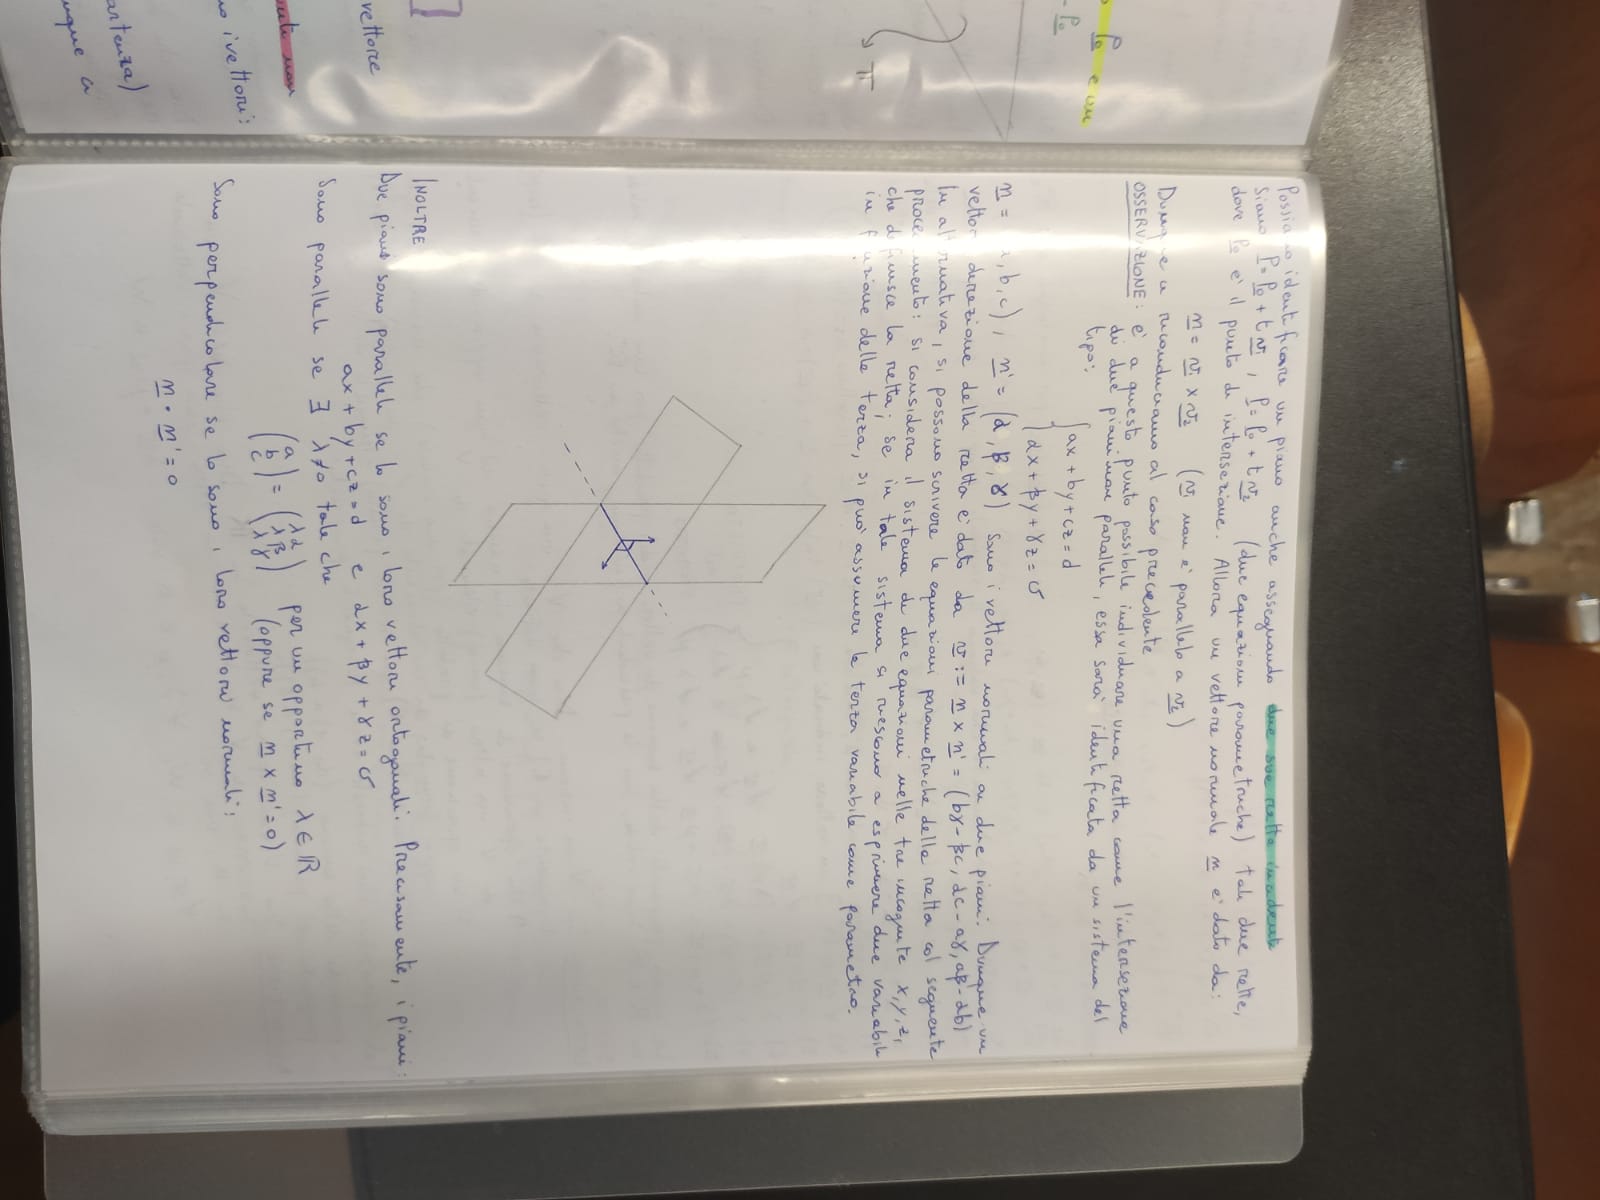 Possiamo identificare un piano anche assegnando due sue rette incidenti
Siano P = P₀ + t v₁ , P = P₀ + t v₂ (due equazioni parametriche) tali due rette,
dove P₀ e' il punto di intersezione. Allora un vettore normale n e' dato da:
n = v₁ x v₂ (v₁ non e' parallelo a v₂)
Dunque ci riconduciamo al caso precedente
OSSERVAZIONE: e' a questo punto possibile individuare una retta come l'intersezione
di due piani non paralleli, essa sarà identificata da un sistema del
tipo:
{ ax + by + cz = d
{ αx + βy + γz = σ
n = (a, b, c), n' = (α, β, γ) sono i vettori normali ai due piani. Dunque un
vettor direzione della retta e' dato da v := n x n' = (bγ - βc, αc - aγ, aβ - αb)
In alternativa, si possono scrivere le equazioni parametriche della retta col seguente
procedimento: si considera il sistema di due equazioni nelle tre incognite x, y, z,
che definisce la retta; se in tale sistema si riescono a esprimere due variabili
in funzione della terza, si può assumere la terza variabile come parametro.
INOLTRE
Due piani sono paralleli se lo sono i loro vettori ortogonali. Precisamente, i piani:
ax + by + cz = d e αx + βy + γz = σ
Sono paralleli se ∃ λ≠0 tale che
(a b c) = (λα λβ λγ) per un opportuno λ ∈ ℝ (oppure se n x n' = 0)
Sono perpendicolare se lo sono i loro vettori normali:
n • n' = 0
P₀ e un
- P₀
π
vettore
no i vettori:
artenza)
nque ci